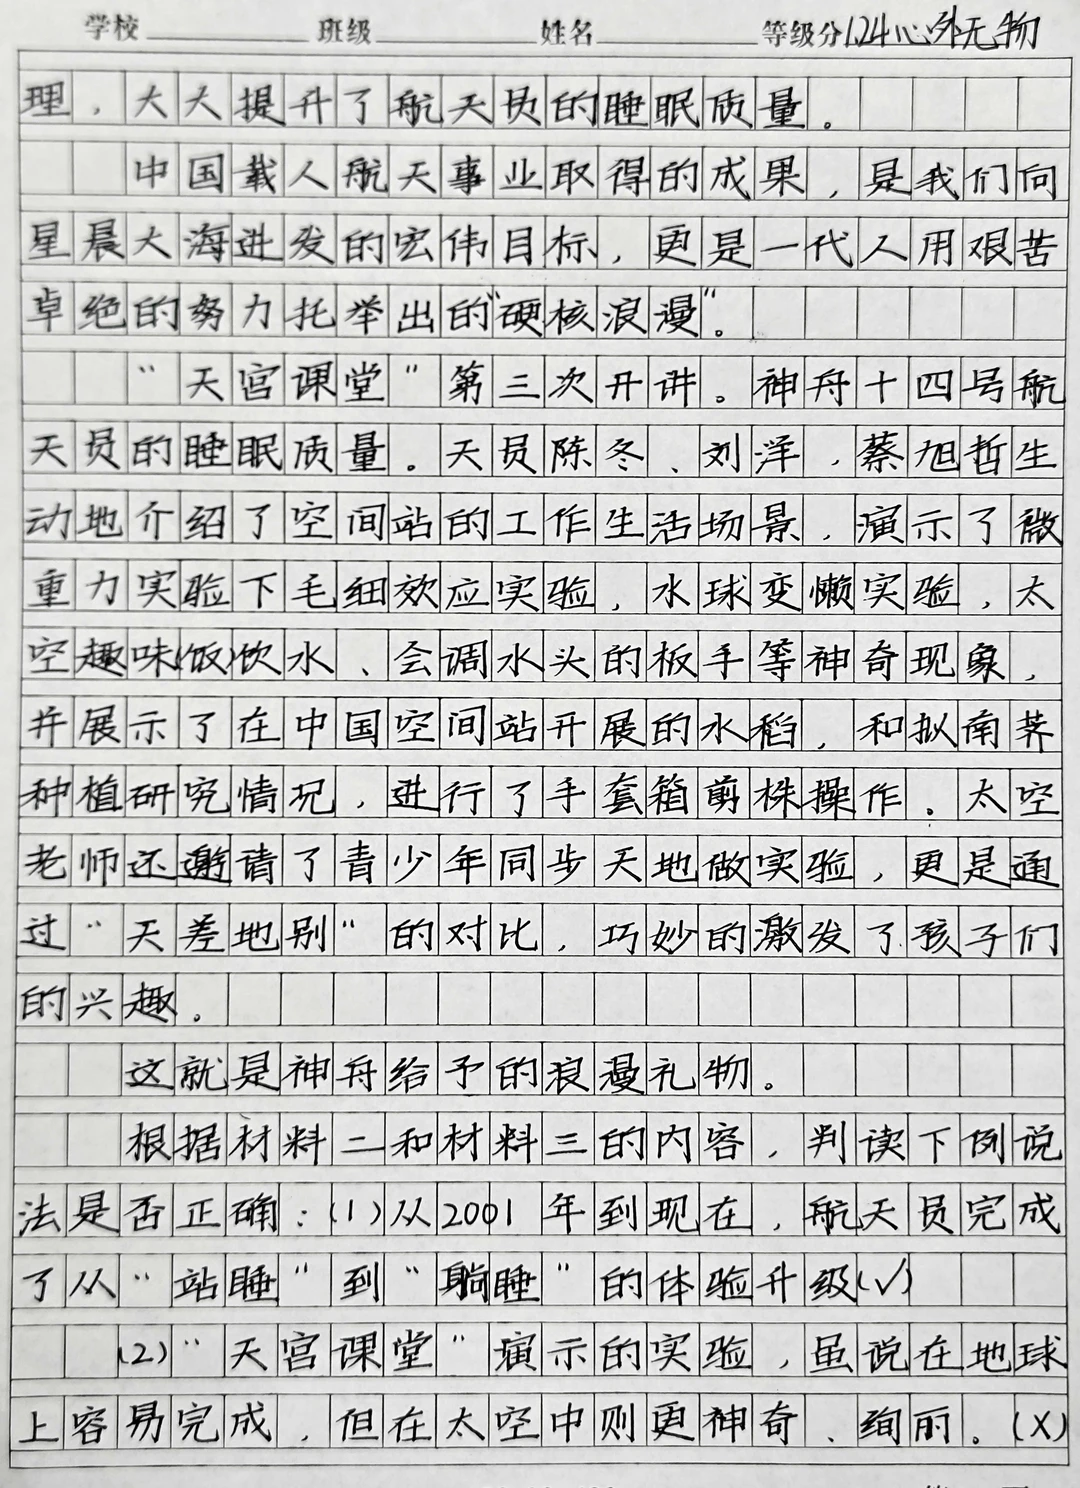 学校 班级 姓名 等级分124心外无物
理,大大提升了航天员的睡眠质量。
中国载人航天事业取得的成果,是我们向
星晨大海进发的宏伟目标,更是一代人用艰苦
卓绝的努力托举出的“硬核浪漫”。
“天宫课堂”第三次开讲。神舟十四号航
天员的睡眠质量。天员陈冬、刘洋,蔡旭哲生
动地介绍了空间站的工作生活场景,演示了微
重力实验下毛细效应实验,水球变懒实验,太
空趣味(饭)饮水、会调水头的板手等神奇现象,
并展示了在中国空间站开展的水稻,和拟南荞
种植研究情况,进行了手套箱剪株操作。太空
老师还邀请了青少年同步天地做实验,更是通
过“天差地别”的对比,巧妙的激发了孩子们
的兴趣。
这就是神舟给予的浪漫礼物。
根据材料二和材料三的内容,判读下例说
法是否正确:(1)从2001年到现在,航天员完成
了从“站睡”到“躺睡”的体验升级(√)
(2)“天宫课堂”演示的实验,虽说在地球
上容易完成,但在太空中则更神奇、绚丽。(X)